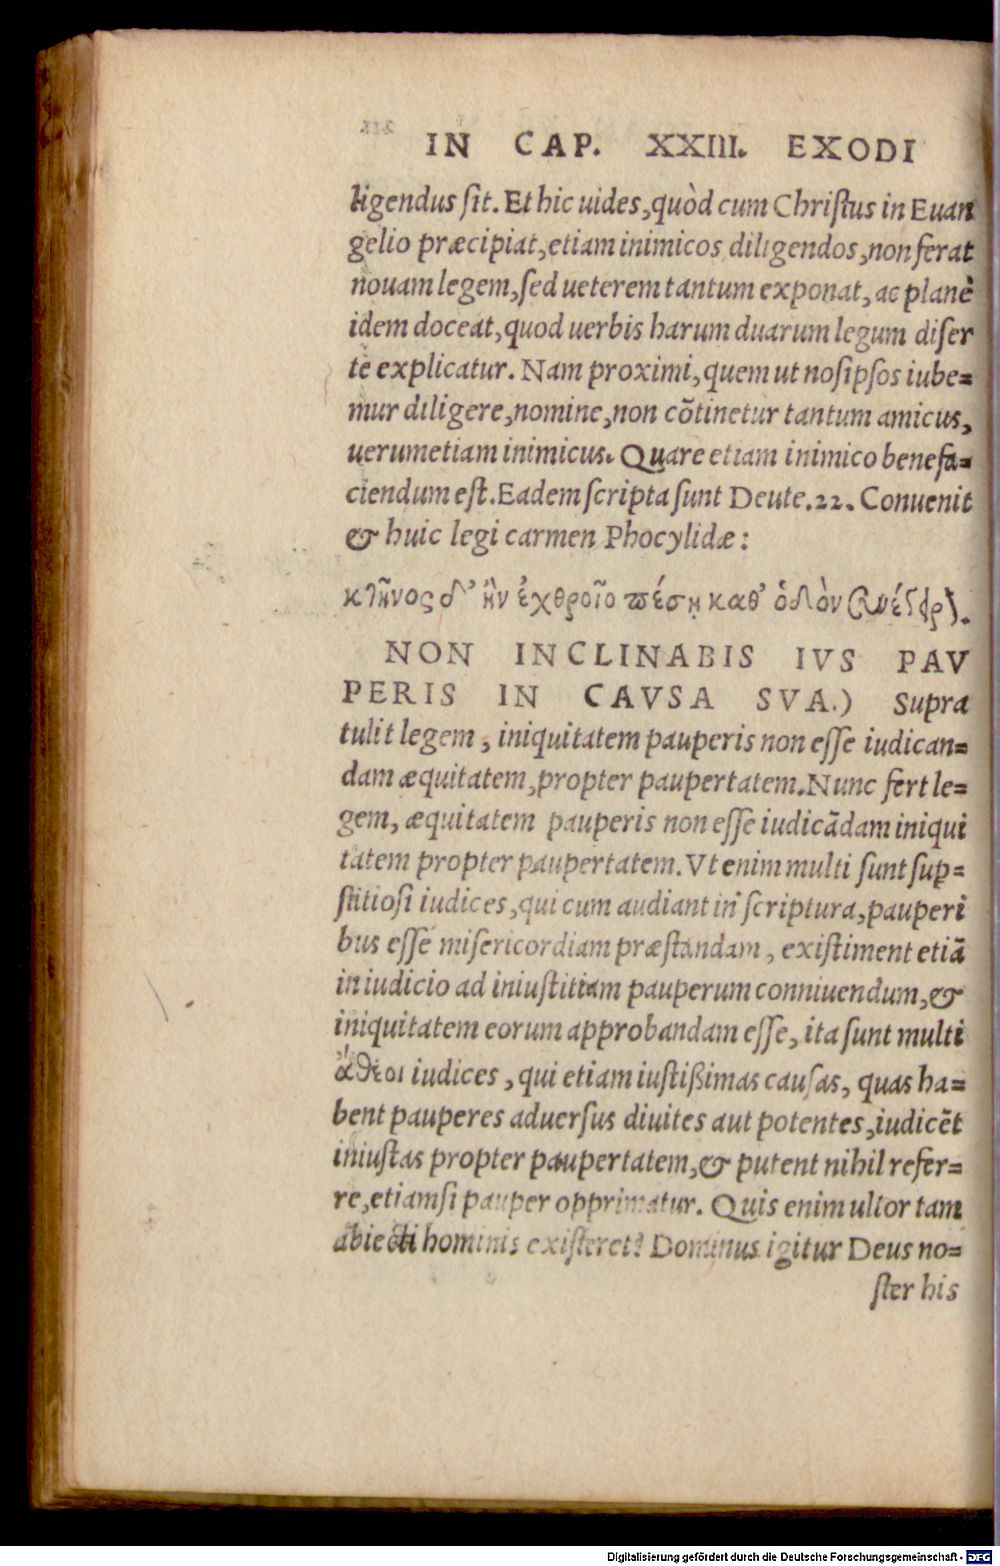 IN CAP. XXIII. EXODI
ligendus ſit. Et hic uides, quòd cum Chriſtus in Euan
gelio præcipiat, etiam inimicos diligendos, non ferat
nouam legem, ſed ueterem tantum exponat, ac planè
idem doceat, quod uerbis harum duarum legum diſer
te explicatur. Nam proximi, quem ut noſipſos iube=
mur diligere, nomine, non cõtinetur tantum amicus,
uerumetiam inimicus. Quare etiam inimico benefa=
ciendum eſt. Eadem ſcripta ſunt Deute. 22. Conuenit
& huic legi carmen Phocylidæ:
κτῆνος δ' ἢν ἐχθροῖο πέσῃ καθ' ὁδὸν συνέγειρε.
NON INCLINABIS IVS PAV
PERIS IN CAVSA SVA.) Supra
tulit legem, iniquitatem pauperis non eſſe iudican=
dam æquitatem, propter paupertatem. Nunc fert le=
gem, æquitatem pauperis non eſſe iudicãdam iniqui
tatem propter paupertatem. Vt enim multi ſunt ſup=
ſtitioſi iudices, qui cum audiant in ſcriptura, pauperi
bus eſſe miſericordiam præſtandam, exiſtiment etiã
in iudicio ad iniuſtitiam pauperum conniuendum, &
iniquitatem eorum approbandam eſſe, ita ſunt multi
ἄθεοι iudices, qui etiam iuſtißimas cauſas, quas ha=
bent pauperes aduerſus diuites aut potentes, iudicẽt
iniuſtas propter paupertatem, & putent nihil refer=
re, etiamſi pauper opprimatur. Quis enim ultor tam
abiecti hominis exiſteret? Dominus igitur Deus no=
ſter his
Digitalisierung gefördert durch die Deutsche Forschungsgemeinschaft - DFG